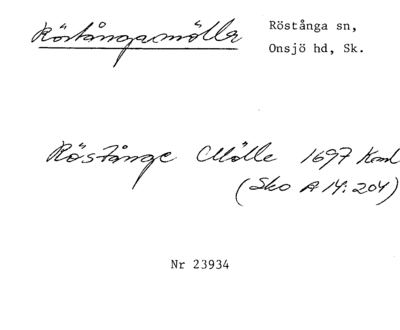 Röstångamölla
Röstånga sn,
Onsjö hd, Sk.
Röstånge Mölle 1697 Kml
(Sko A 14:204)
Nr 23934